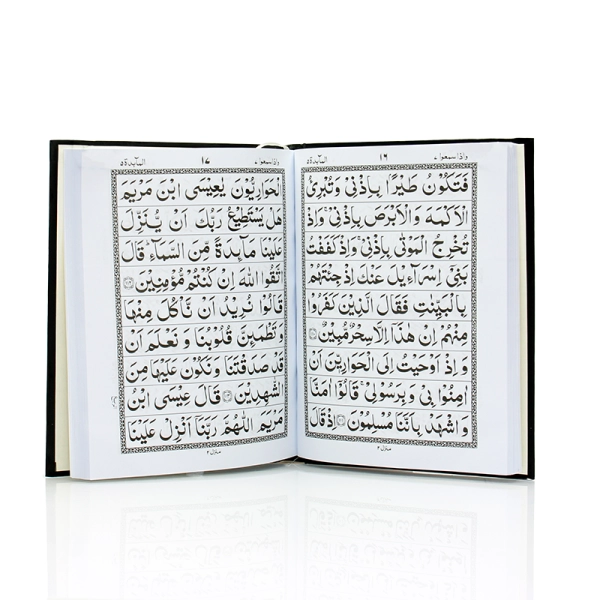 واذا سمعوا ٧ ١٦ المآىدة ٥
فَتَكُوْنُ طَيْرًۢا بِاِذْنِيْ وَتُبْرِئُ
الْاَكْمَهَ وَالْاَبْرَصَ بِاِذْنِيْ ۚ وَاِذْ
تُخْرِجُ الْمَوْتٰى بِاِذْنِيْ ۚ وَاِذْ كَفَفْتُ
بَنِيْٓ اِسْرَآءِيْلَ عَنْكَ اِذْ جِئْتَهُمْ
بِالْبَيِّنٰتِ فَقَالَ الَّذِيْنَ كَفَرُوْا
مِنْهُمْ اِنْ هٰذَآ اِلَّا سِحْرٌ مُّبِيْنٌ
وَ اِذْ اَوْحَيْتُ اِلَى الْحَوَارِيّٖنَ اَنْ
اٰمِنُوْا بِيْ وَ بِرَسُوْلِيْ ۚ قَالُوْٓا اٰمَنَّا
وَ اشْهَدْ بِاَنَّنَا مُسْلِمُوْنَ اِذْ قَالَ
منزل ٢
واذا سمعوا ٧ ١٧ المآىدة ٥
الْحَوَارِيُّوْنَ يٰعِيْسَى ابْنَ مَرْيَمَ
هَلْ يَسْتَطِيْعُ رَبُّكَ اَنْ يُّنَزِّلَ
عَلَيْنَا مَآىِٕدَةً مِّنَ السَّمَآءِ ؕ قَالَ
اتَّقُوا اللّٰهَ اِنْ كُنْتُمْ مُّؤْمِنِيْنَ
قَالُوْا نُرِيْدُ اَنْ نَّاْكُلَ مِنْهَا
وَ تَطْمَىِٕنَّ قُلُوْبُنَا وَ نَعْلَمَ اَنْ
قَدْ صَدَقْتَنَا وَ نَكُوْنَ عَلَيْهَا مِنَ
الشّٰهِدِيْنَ قَالَ عِيْسَى ابْنُ
مَرْيَمَ اللّٰهُمَّ رَبَّنَآ اَنْزِلْ عَلَيْنَا
منزل ٢